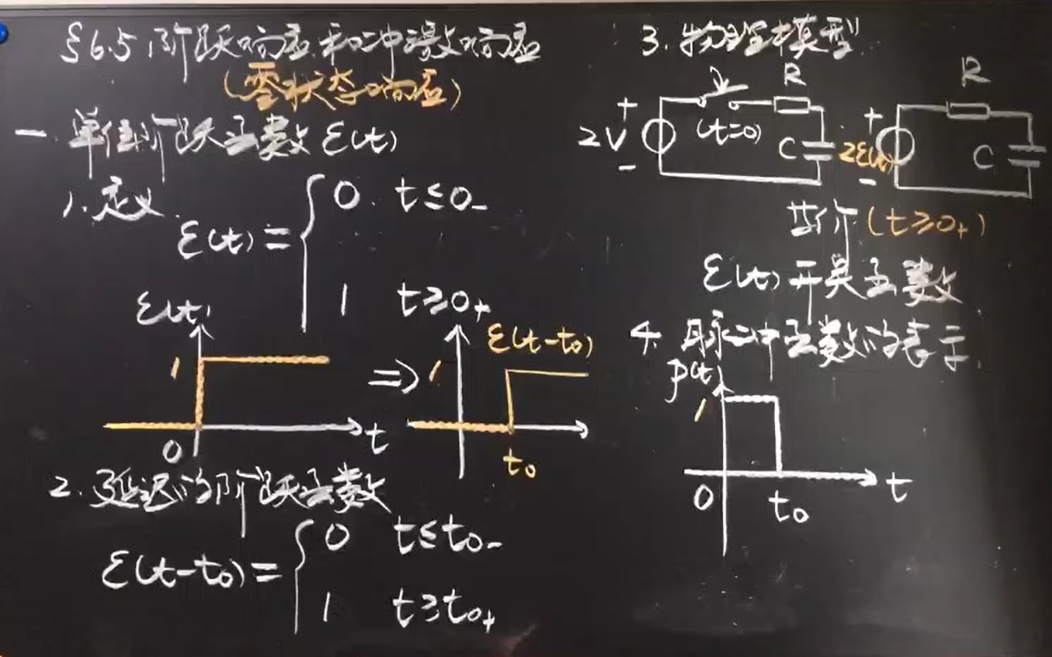 §6.5 阶跃响应和冲激响应
(零状态响应)
一. 单位阶跃函数 ε(t)
1. 定义
ε(t) = { 0 t ≤ 0₋
1 t ≥ 0₊
ε(t)
1
0
t
⇒
1
ε(t-t₀)
t₀
2. 延迟的阶跃函数
ε(t-t₀) = { 0 t ≤ t₀₋
1 t ≥ t₀₊
3. 物理模型
2V
+
-
(t=0)
R
C
2ε(t)
+
-
R
C
等价 (t ≥ 0₊)
ε(t) 开关函数
4. 脉冲函数的表示
p(t)
1
0
t₀
t